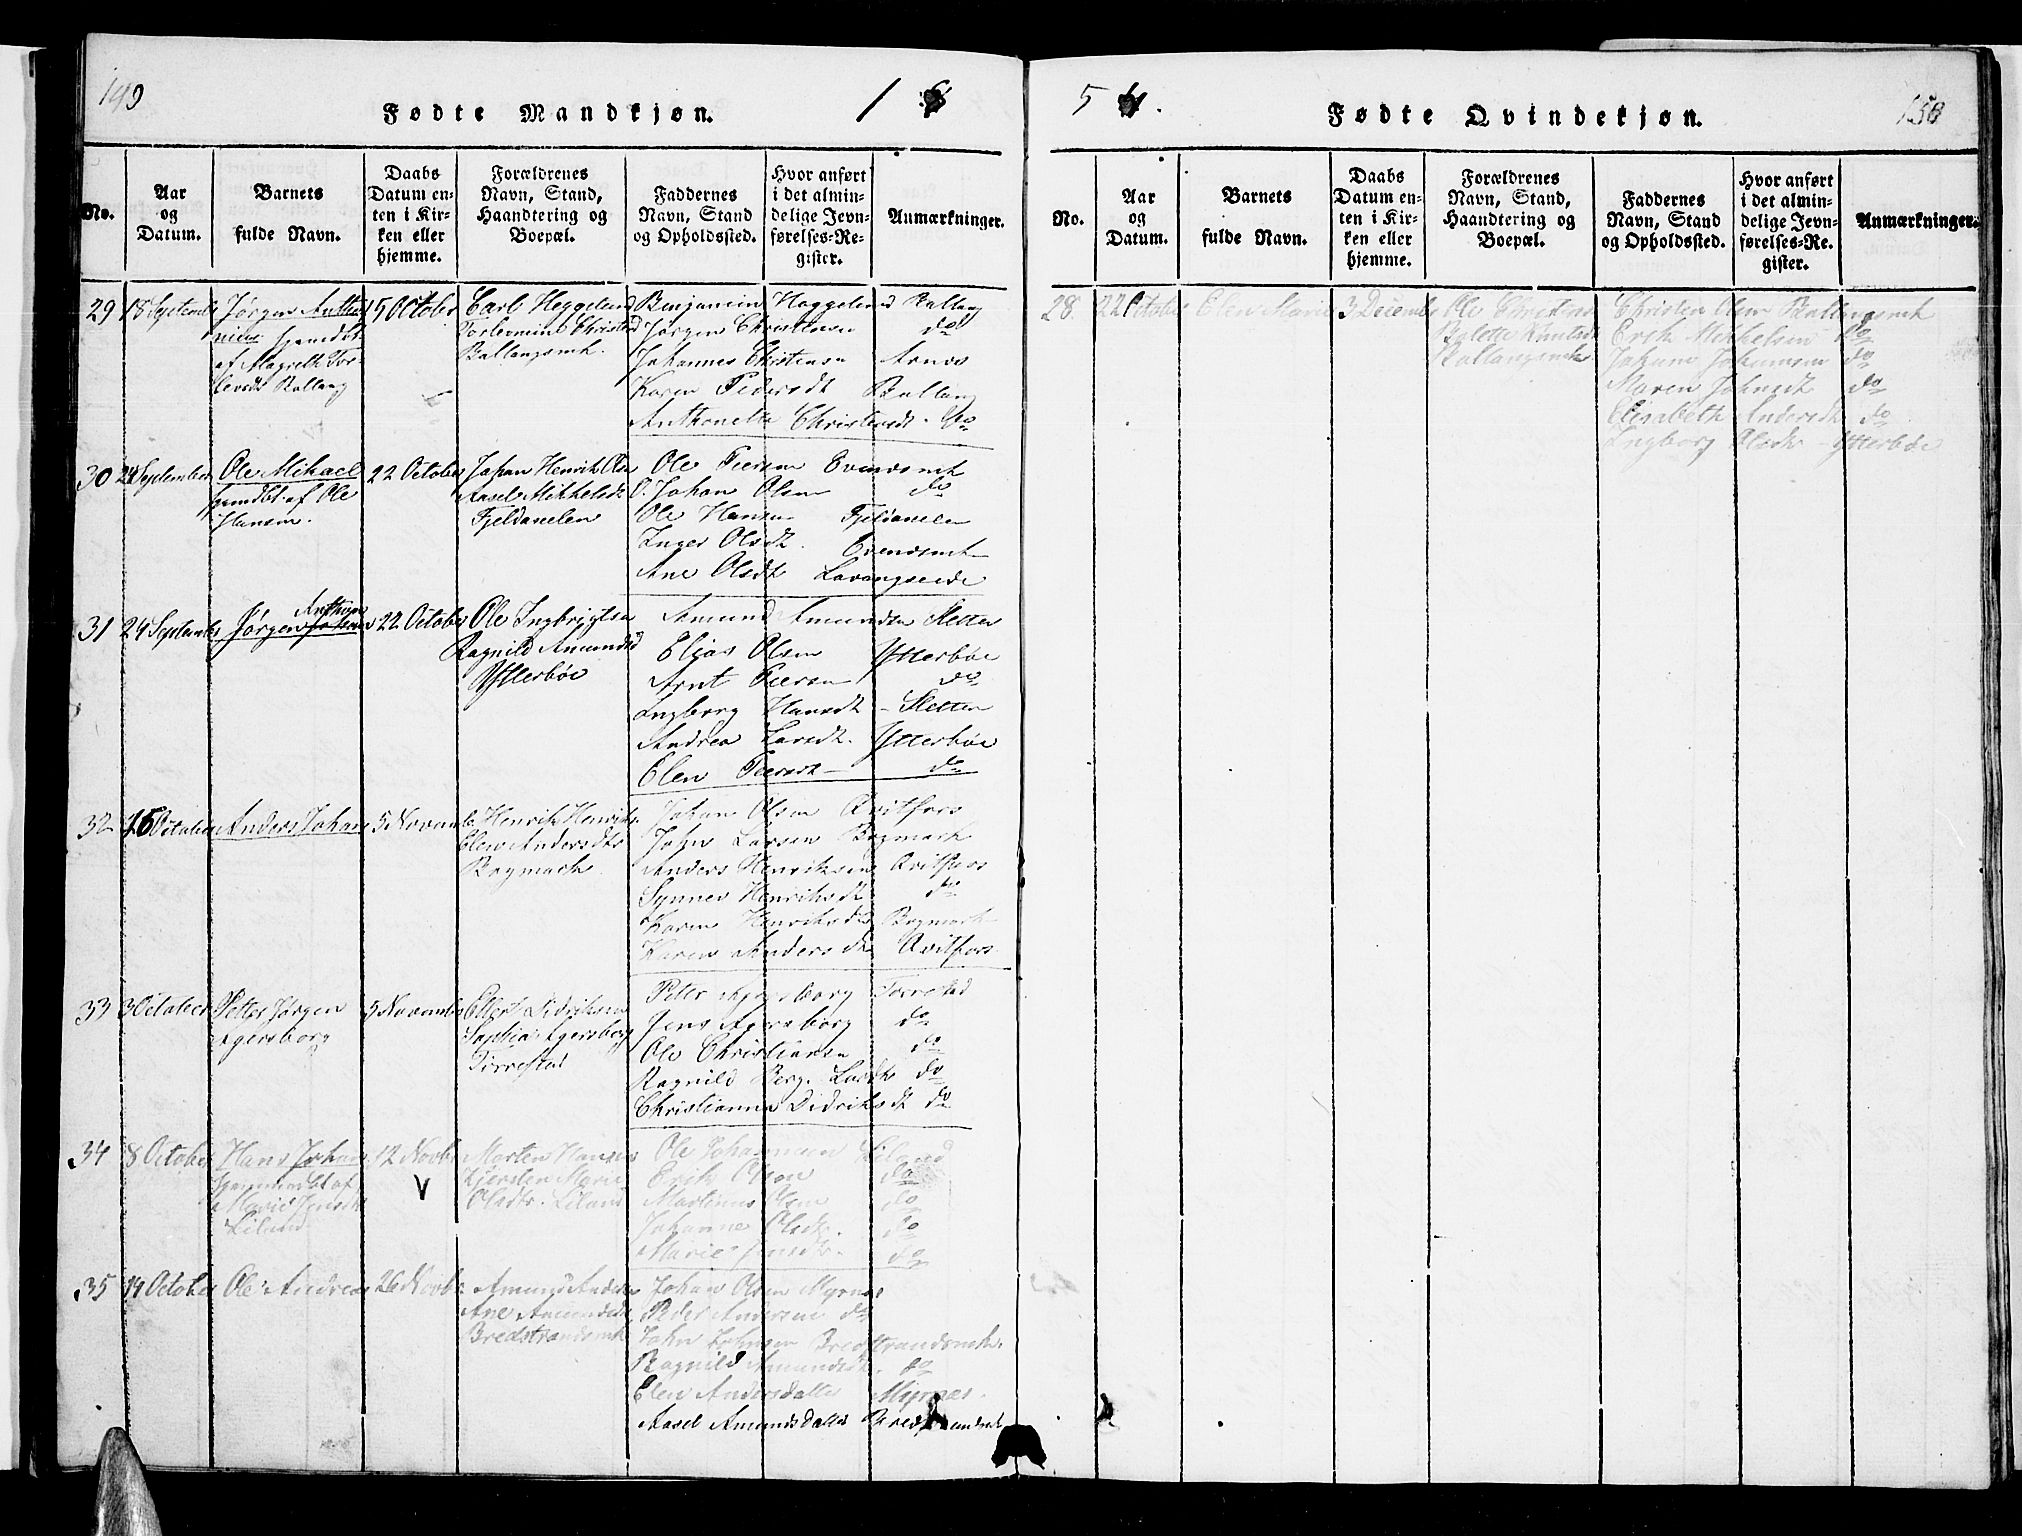 149
Fødte Mandkjøn.
1
No.
Aar
og
Datum.
Barnets
fulde Navn.
Daabs
Datum en-
ten i Kir-
ken eller
hjemme.
Forældrenes
Navn, Stand,
Haandtering og
Boepæl.
Faddernes
Navn, Stand
og Opholdssted.
Hvor anført
i det almin-
delige Jevn-
førelses-Re-
gister.
Anmærkninger.
29
18 September
Jørgen Antho
nius hjemdbt
af Magrethe Tor-
levdt Ballang
15 October
Carl Heggelund
Torlevmine Christensd
Ballangsmk.
Benjamin Heggelund Ballang
Jørgen Christensen do
Johannes Christensen Arnes
Karen Pedersdt Ballang
Anthonette Christensdt. do
30
24 September
Ole Mikael
hjemdbt af Ole
Hansen.
22 October
Johan Henrik Olsen
Aasel Mikkelsdt
Fjeldavelen
Ole Peersen Evensmk
O. Johan Olsen do
Ole Hansen Fjeldavelen
Inger Olsdt. Evensmk
Ane Olsdt Lavangseide
31
24 September
Anthon
Jørgen Johan
22 October
Ole Ingbrigtsen
Ragnild Amundsd
Ytterbøe
Amund Amundsen Sletten
Elias Olsen Ytterbøe
Arnt Peersen do
Ingborg Hansdt - Sletten
Andrea Larsdt. Ytterbøe
Elen Peersdt - do
32
15 October
Anders Johan
5 Novemb
Henrik Henriks.
Elen Andersdtr
Bogmark
Johan Olsen Qvitfors
John Larsen Bogmark
Anders Henriksen Qvitfors
Synnev Henriksdt do
Karen Henriksdt Bogmark
Karen Andersdt Qvitfors
33
3 October
Petter Jørgen
Agersborg
5 Novembr
Ellert Didriksen
Sophia Agersborg
Tørrestad
Peter Agersborg Torrestad
Jens Agersborg do
Ole Christiansen do
Ragnild Berg. Larsdt do
Christianna Didriksdt do
34
8 October
Hans Johan
hjemmedbt af
Marie Jensdt
Liland
12 Novbr
V
Morten Hansen
Kjersten Marie
Olsdtr. Liland
Ole Johannesen Liland
Erik Olsen do
Martinus Olsen do
Johanne Olsdt. do
Marie Jensdtr. do
35
14 October
Ole Andreas
26 Novbr.
Amund Anders
Ane Amundsdt
Bredstrandsmk
Johan Olsen Myrnes
Peder Andersen do
John Johnsen Bredstrandsmk.
Ragnild Amundsdt. do
Elen Andersdatter Myrnes.
Aasel Amundsdatter Bredstrandsmk
5
150
Fødte Qvindekjøn.
No.
Aar
og
Datum.
Barnets
fulde Navn.
Daabs
Datum en-
ten i Kir-
ken eller
hjemme.
Forældrenes
Navn, Stand,
Haandtering og
Boepæl.
Faddernes
Navn, Stand
og Opholdssted.
Hvor anført
i det almin-
delige Jevn-
førelses-Re-
gister.
Anmærkninger.
28
22 October
Elen Marie
3 Decembr
Ole Christens
Balette Knutsdt
Ballangsmk
Christen Olsen Ballangsmk
Erik Mikkelsen do
Johan Johansen do
Maren Johnsdt do
Elisabeth Andersdt do
Ingborg Olsdtr - Ytterbøe